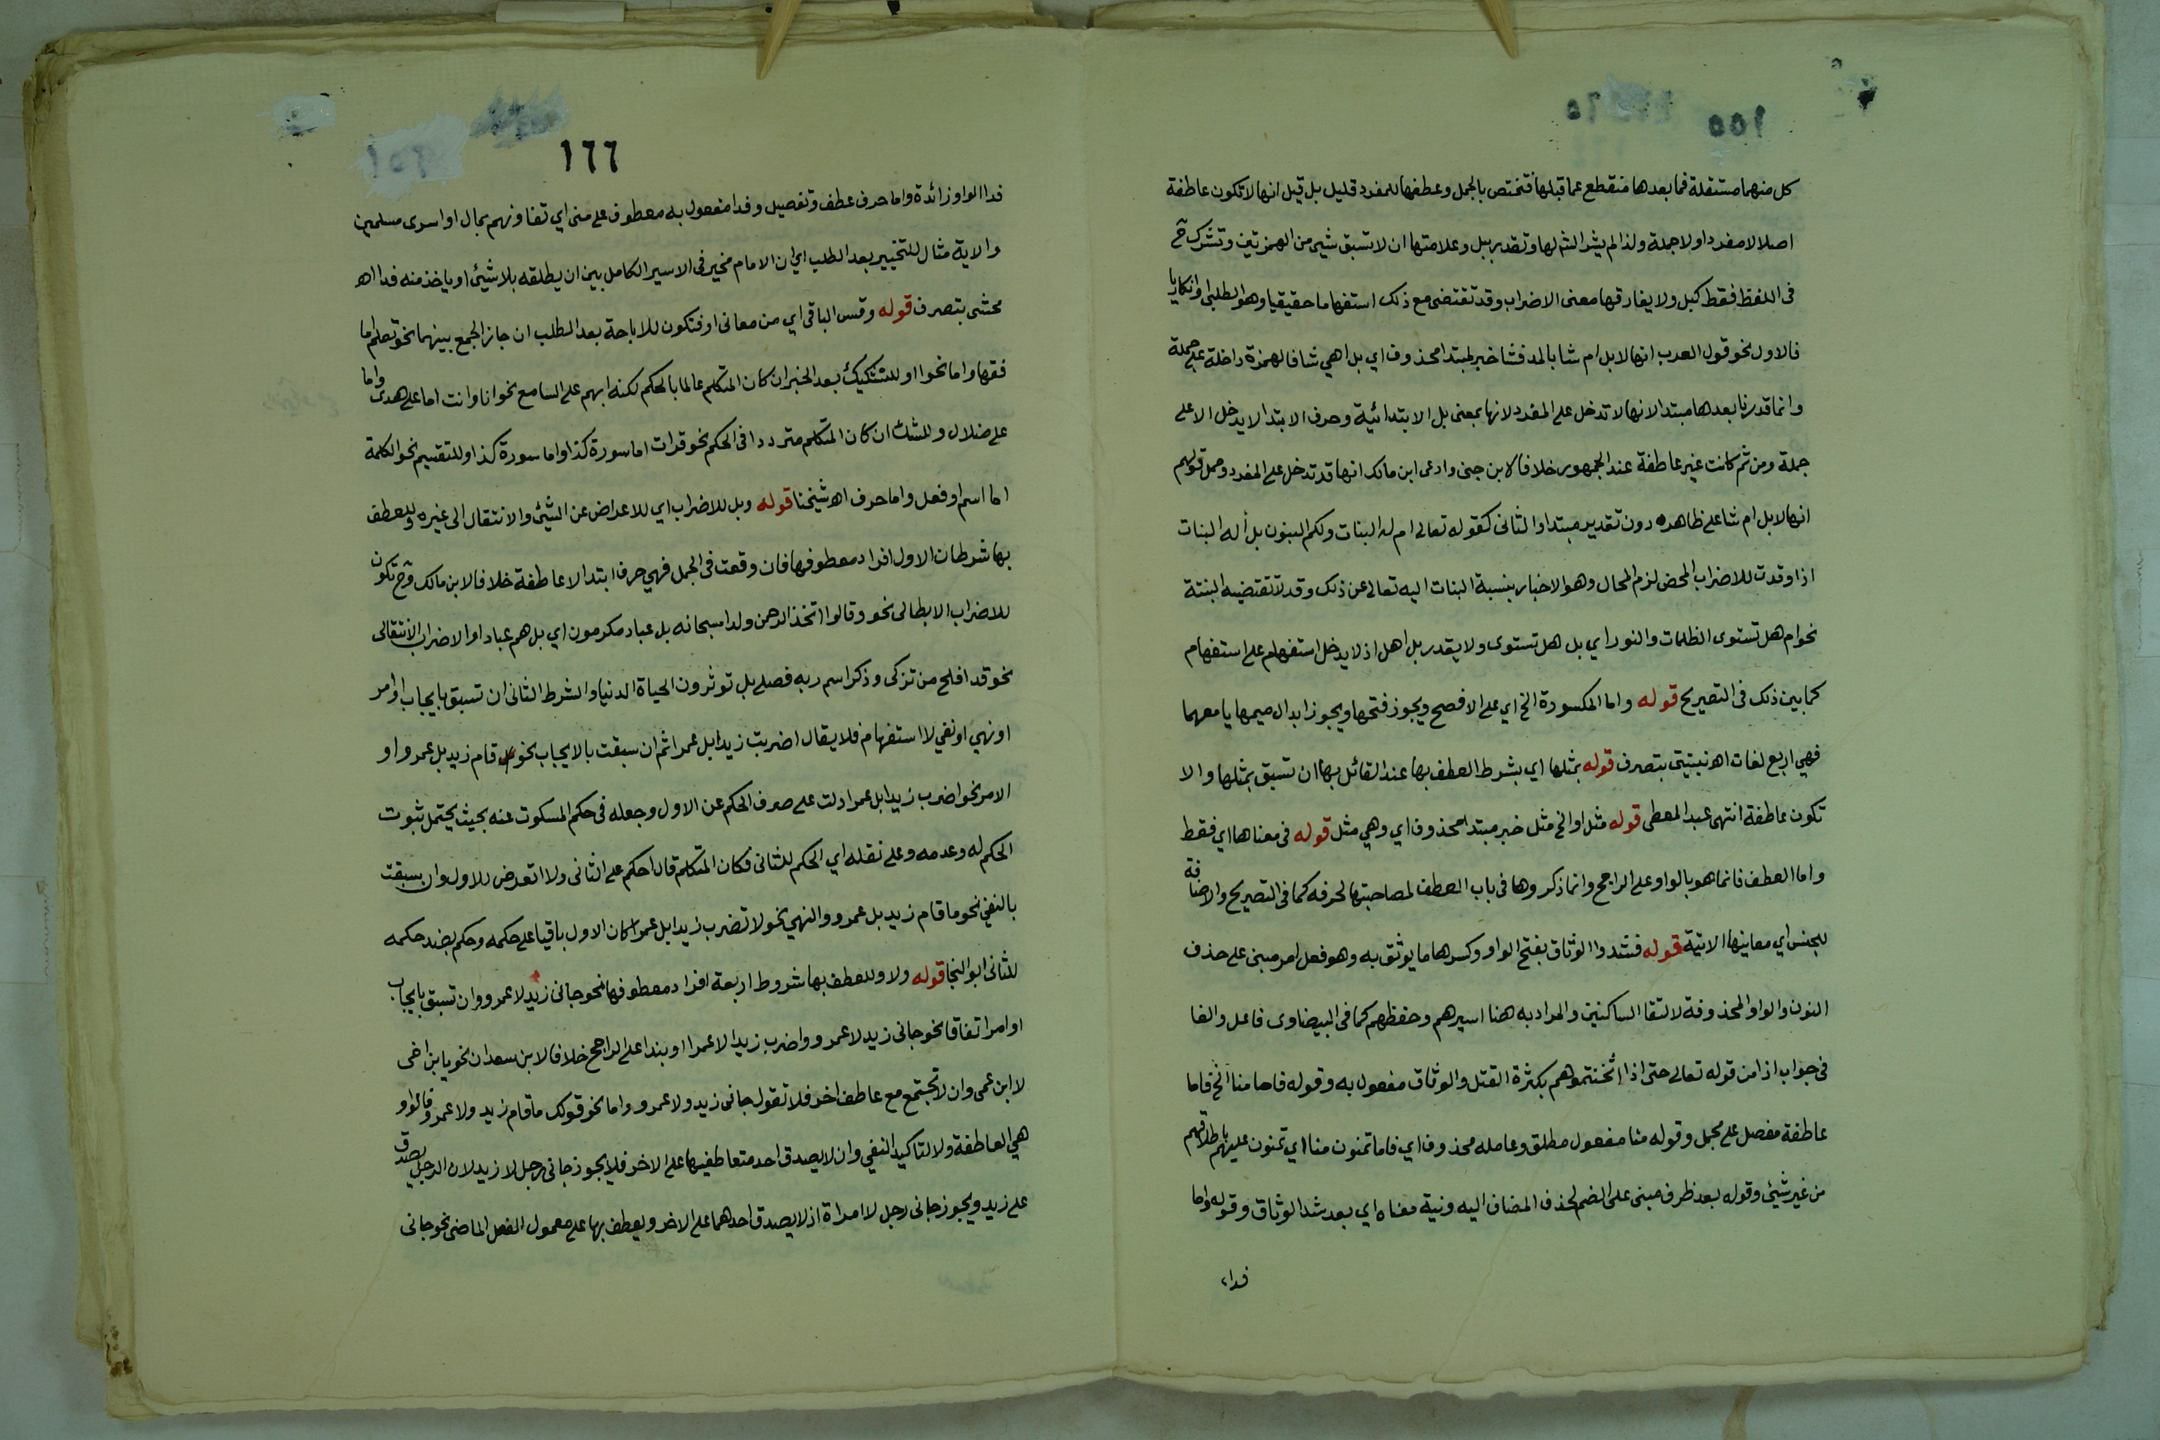 ١٥٥
كل منهما مستقلة فما بعدها منقطع عما قبلها فتختص بالجمل وعطفها للمفرد قليل بل قيل انها لا تكون عاطفة
اصلا لا مفردا ولا جملة ولذا لم يشر الش لها وتقدر ببل وعلامتها ان لا تسبق بشيء من الهمزتين وتشرك ح
في اللفظ فقط كبل ولا يفارقها معنى الاضراب وقد تقتضى مع ذلك استفهاما حقيقيا وهو الطلبي او انكاريا
فالاول نحو قول العرب انها لابل ام شا بالمد فشا خبر لمبتدا محذوف اي بل اهي شا فالهمزة داخلة على جملة
وانما قدرنا بعدها مبتدا لانها لا تدخل على المفرد لانها بمعنى بل الابتدائية وحرف الابتدا لا يدخل الا على
جملة ومن ثم كانت غير عاطفة عند الجمهور خلافا لابن جنى وادعى ابن مالك انها قد تدخل على المفرد وحمل قولهم
انها لابل ام شا على ظاهره دون تقدير مبتدا والثانى كقوله تعالى ام له البنات ولكم البنون بل أله البنات
اذ لو قدرت للاضراب المحض لزم المحال وهو الاخبار بنسبة البنات اليه تعالى عن ذلك وقد لا تقتضيه البتة
نحو ام هل تستوى الظلمات والنور اي بل هل تستوى ولا يقدر بل اهل اذ لا يدخل استفهام على استفهام
كما بين ذلك في التصريح قوله واما المكسورة الخ اي على الافصح ويجوز فتحها ويجوز ابدال ميمها يا معهما
فهي اربع لغات اه نبتيتى بتصرف قوله بمثلها اي بشرط العطف بها عند القائل بها ان تسبق بمثلها والا
تكون عاطفة انتهى عبد المعطى قوله مثل او الخ مثل خبر مبتدا محذوف اي وهي مثل قوله في معناها اي فقط
واما العطف فانما هو بالواو على الراجح وانما ذكروها في باب العطف لمصاحبتها لحرفه كما في التصريح والاضافة
للجنس اي معانيها الاتية قوله فشدوا الوثاق بفتح الواو وكسرها ما يوثق به وهو فعل امر مبنى على حذف
النون والواو المحذوفة لالتقا الساكنين والمراد به هنا اسيرهم وحفظهم كما في البيضاوى فاعل والفا
في جواب اذا من قوله تعالى حتى اذا اثخنتموهم بكثرة القتل والوثاق مفعول به وقوله فاما منا الخ فاما
عاطفة مفصل على مجمل وقوله منا مفعول مطلق وعامله محذوف اي فاما تمنون منا اي تمنون عليهم باطلاقهم
من غير شيئ وقوله بعد ظرف مبنى على الضم لحذف المضاف اليه ونية معناه اي بعد شد الوثاق وقوله واما
فداء
١٦٦
فدا الواو زائدة واما حرف عطف وتفصيل وفدا مفعول به معطوف على منى اي تفاونهم بمال او اسرى مسلمين
والاية مثال للتخيير بعد الطلب اي ان الامام مخير في الاسير الكامل بين ان يطلقه بلا شيئ او ياخذ منه فدا اه
محشى بتصرف قوله وقس الباقي اي من معانى او فتكون للاباحة بعد الطلب ان جاز الجمع بينهما نحو تعلم اما
فقها واما نحوا او للتشكيك بعد الخبر ان كان المتكلم عالما بالحكم لكنه ابهم على السامع نحو انا وانت اما على هدى واما
على ضلال وللشك ان كان المتكلم مترددا في الحكم نحو قرات اما سورة كذا واما سورة كذا وللتقسيم نحو الكلمة
اما اسم او فعل واما حرف اه شيخنا قوله وبل للاضراب اي للاعراض عن الشيئ والانتقال الى غيره وللعطف
بها شرطان الاول افراد معطوفها فان وقعت في الجمل فهي حرف ابتدا لا عاطفة خلافا لابن مالك وح تكون
للاضراب الابطالى نحو وقالوا اتخذ الرحمن ولدا سبحانه بل عباد مكرمون اي بل هم عباد او الاضراب الانتقالى
نحو قد افلح من تزكى وذكر اسم ربه فصلى بل توثرون الحياة الدنيا والشرط الثانى ان تسبق بايجاب او امر
او نهي او نفي لا استفهام فلا يقال اضربت زيدا بل عمرا ثم ان سبقت بالايجاب نحو قام زيد بل عمرو او
الامر نحو اضرب زيدا بل عمرا دلت على صرف الحكم عن الاول وجعله في حكم المسكوت عنه بحيث يحتمل ثبوت
الحكم له وعدمه وعلى نقله اي الحكم للثانى فكان المتكلم قال احكم على الثانى ولا اتعرض للاول وان سبقت
بالنفي نحو ما قام زيد بل عمرو والنهي نحو لا تضرب زيدا بل عمرا كان الاول باقيا على حكمه وحكم بضد حكمه
للثانى ابو النجا قوله ولا وللعطف بها شروط اربعة افراد معطوفها نحو جانى زيد لا عمرو وان تسبق بايجاب
او امر اتفاقا نحو جانى زيد لا عمرو واضرب زيدا لا عمرا او بندا على الراجح خلافا لابن سعدان نحو يا بن اخى
لا ابن عمى وان لا تجتمع مع عاطف اخر فلا تقول جانى زيد ولا عمرو واما نحو قولك ما قام زيد ولا عمرو فالواو
هي العاطفة ولا لتاكيد النفي وان لا يصدق احد متعاطفيها على الاخر فلا يجوز جانى رجل لا زيد لان الرجل يصدق
على زيد ويجوز جانى رجل لا امراة اذ لا يصدق احدهما على الاخر ويعطف بها على معمول الفعل الماضى نحو جانى